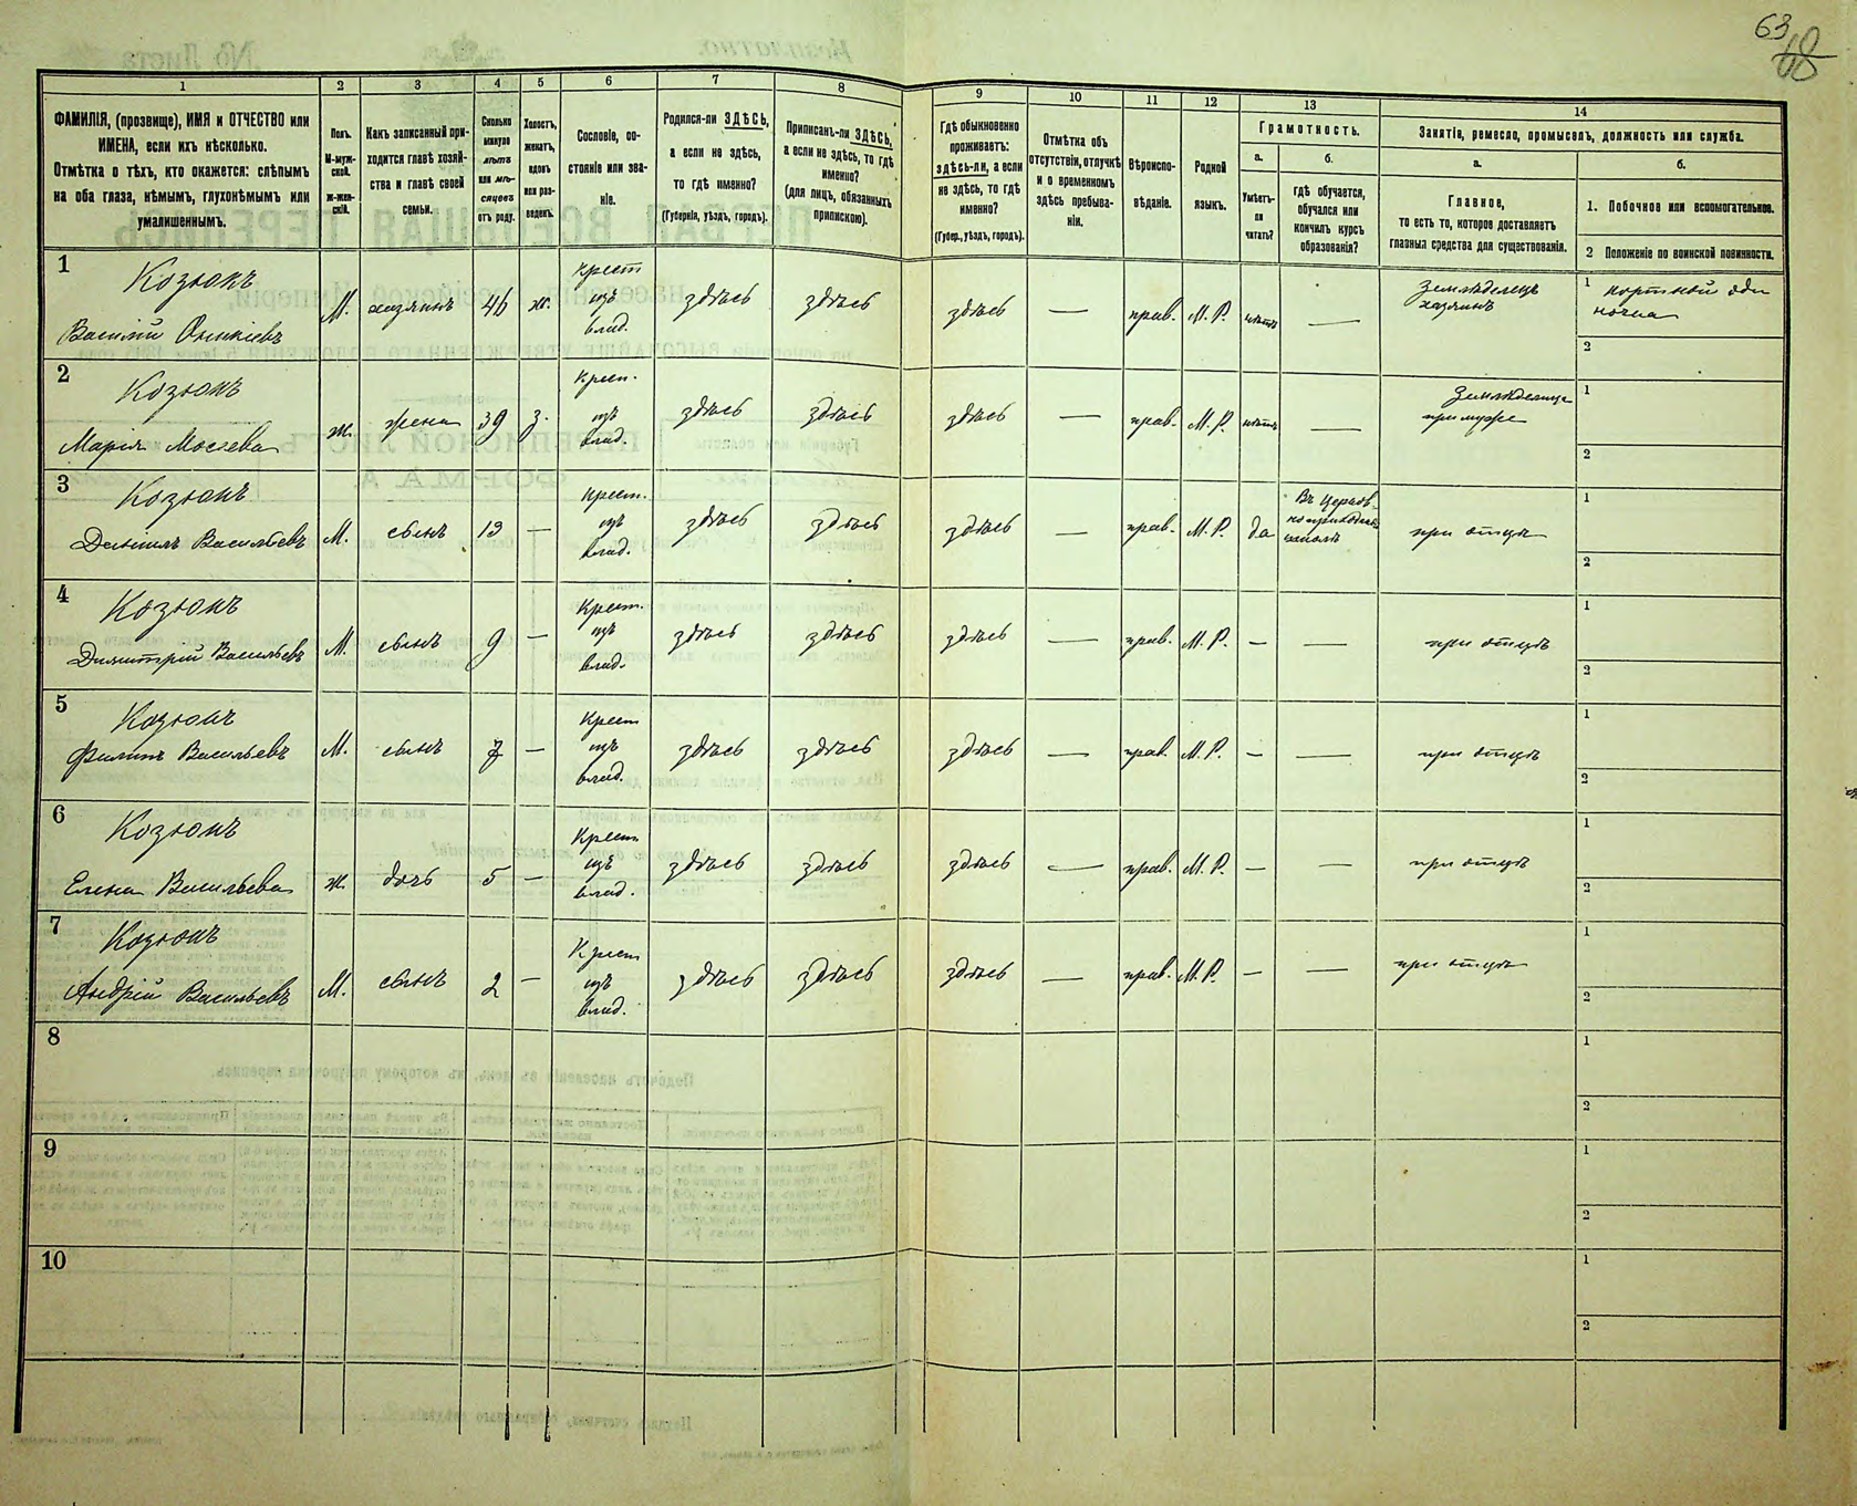 63
68
1
2
3
4
5
6
7
8
9
10
11
12
13
14
ФАМИЛІЯ, (прозвище), ИМЯ и ОТЧЕСТВО или
ИМЕНА, если ихъ нѣсколько.
Отмѣтка о тѣхъ, кто окажется: слѣпымъ
на оба глаза, нѣмымъ, глухонѣмымъ или
умалишеннымъ.
Полъ.
М-муж-
ской.
ж-жен-
скій.
Какъ записанный при-
ходится главѣ хозяй-
ства и главѣ своей
семьи.
Сколько
минуло
лѣтъ
или мѣ-
сяцевъ
отъ роду.
Холостъ,
женатъ,
вдовъ
или раз-
веденъ.
Сословіе, со-
стояніе или зва-
ніе.
Родился-ли ЗДѢСЬ,
а если не здѣсь,
то гдѣ именно?
(Губернія, уѣздъ, городъ).
Приписанъ-ли ЗДѢСЬ,
а если не здѣсь, то гдѣ
именно?
(для лицъ, обязанныхъ
припискою).
Гдѣ обыкновенно
проживаетъ:
здѣсь-ли, а если
не здѣсь, то гдѣ
именно?
(Губер., уѣздъ, городъ).
Отмѣтка объ
отсутствіи, отлучкѣ
и о временномъ
здѣсь пребыва-
ніи.
Вѣроиспо-
вѣданіе.
Родной
языкъ.
Грамотность.
а.
Умѣетъ-
ли
читать?
б.
гдѣ обучается,
обучался или
кончилъ курсъ
образованія?
Занятіе, ремесло, промыселъ, должность или служба.
а.
Главное,
то есть то, которое доставляетъ
главныя средства для существованія.
б.
1. Побочное или вспомогательное.
2 Положеніе по воинской повинности.
1
Козюкъ
Василій
М. хозяинъ 46 ж.
крест
изъ
влад.
здѣсь здѣсь здѣсь — прав. М. Р. нѣтъ —
Земледѣлецъ
хозяинъ
1 портной оди
ночка
2
2
Козюкъ
Марія Мосѣева
ж. жена 39 з.
крест.
изъ
влад.
здѣсь здѣсь здѣсь — прав. М. Р. нѣтъ —
при мужѣ
1
2
3
Козюкъ
Даніилъ Васильевъ
М. сынъ 13 —
крест.
изъ
влад.
здѣсь здѣсь здѣсь — прав. М. Р. да
Въ Церков-
школѣ
при отцѣ
1
2
4
Козюкъ
Димитрій Васильевъ
М. сынъ 9 —
Крест.
изъ
влад.
здѣсь здѣсь здѣсь — прав. М. Р. — —
при отцѣ
1
2
5
Козюкъ
Филипъ Васильевъ
М. сынъ 7 —
Крест
изъ
влад.
здѣсь здѣсь здѣсь — прав. М. Р. — —
при отцѣ
1
2
6
Козюкъ
Елена Васильева
ж. дочь 5 —
Крест
изъ
влад.
здѣсь здѣсь здѣсь — прав. М. Р. — —
при отцѣ
1
2
7
Козюкъ
Андрій Васильевъ
М. сынъ 2 —
Крест
изъ
влад.
здѣсь здѣсь здѣсь — прав. М. Р. — —
при отцѣ
1
2
8
1
2
9
1
2
10
1
2